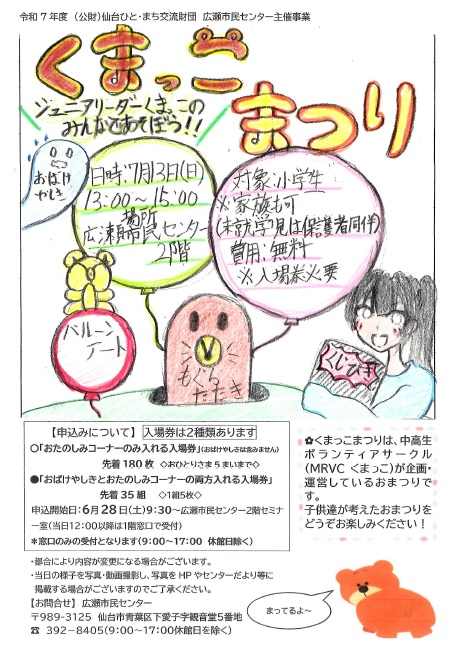 令和7年度 (公財)仙台ひと・まち交流財団 広瀬市民センター主催事業
くまっこ
まつり
ジュニアリーダーくまっこの
みんなであそぼう!!
おばけ
やしき
日時:7月13日(日)
13:00~15:00
場所
広瀬市民センター
2階
対象:小学生
※家族も可
(未就学児は保護者同伴)
費用:無料
※入場券必要
バルーン
アート
もぐら
たたき
くじびき
【申込みについて】入場券は2種類あります
〇「おたのしみコーナーのみ入れる入場券」(おばけやしきは含みません)
先着180枚 ◇おひとりさま5まいまで◇
●「おばけやしきとおたのしみコーナーの両方入れる入場券」
先着35組 ◇1組5枚◇
申込開始日:6月28日(土)9:30~広瀬市民センター2階セミナ
ー室(当日12:00以降は1階窓口で受付)
*窓口のみの受付となります(9:00~17:00 休館日除く)
✿くまっこまつりは、中高生
ボランティアサークル
(MRVC くまっこ)が企画・
運営しているおまつりで
す。
子供達が考えたおまつりを
どうぞお楽しみください!
・都合により内容が変更になる場合がございます。
・当日の様子を写真・動画撮影し、写真をHPやセンターだより等に
掲載する場合がございますのでご了承ください。
【お問合せ】広瀬市民センター
〒989-3125 仙台市青葉区下愛子字観音堂5番地
☎ 392-8405(9:00~17:00休館日を除く)
まってるよ~